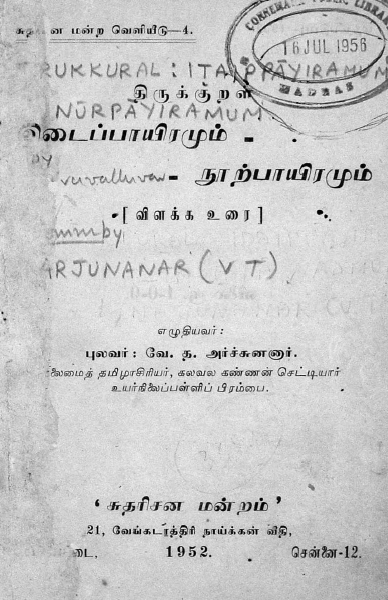 சுதரிசன மன்ற வெளியீடு—4.
CONNEMARA PUBLIC LIBRARY
16 JUL 1956
MADRAS
RUKKURAL : ITAIPPĀYIRAMUM
திருக்குறள்
NŪRPĀYIRAMUM
டைப்பாயிரமும்
by
நூற்பாயிரமும்
[விளக்க உரை]
by
ARJUNANAR (V T)
எழுதியவர்:
புலவர்: வே. த. அர்ச்சுனனார்.
லைமைத் தமிழாசிரியர், கலவல கண்ணன் செட்டியார்
உயர்நிலைப்பள்ளிப் பிரம்பை.
‘சுதரிசன மன்றம்’
21, வேங்கடாத்திரி நாய்க்கன் வீதி,
டை, 1952. சென்னை-12.